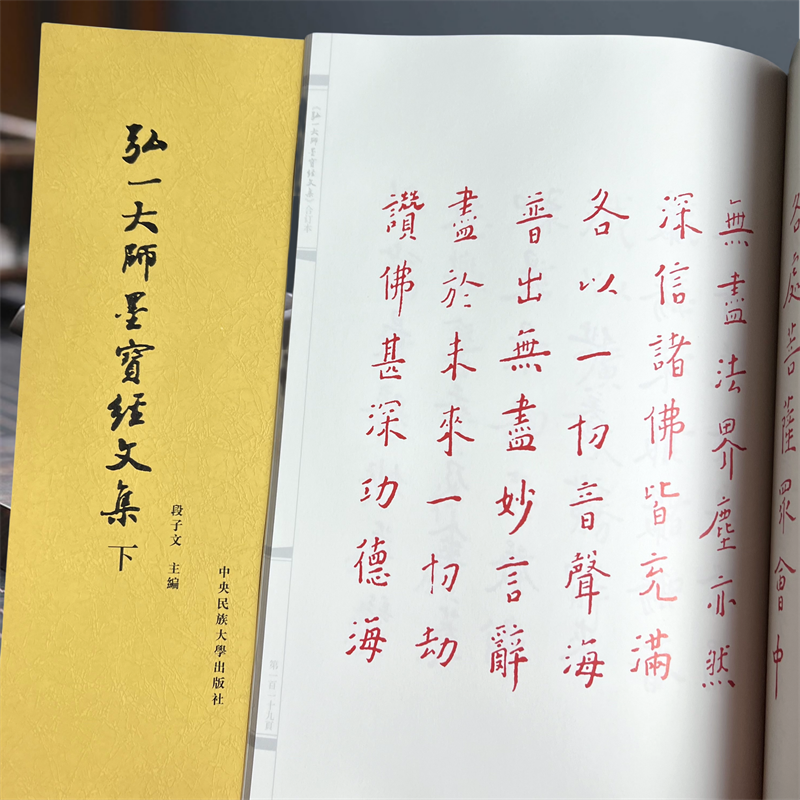 弘一大師墨寶經文集 下
段子文 主編
中央民族大學出版社
各處菩薩眾會中
無盡法界塵亦然
深信諸佛皆充滿
各以一切音聲海
普出無盡妙言辭
盡於未來一切劫
讚佛甚深功德海
弘一大師墨寶經文集
第一百一十九頁